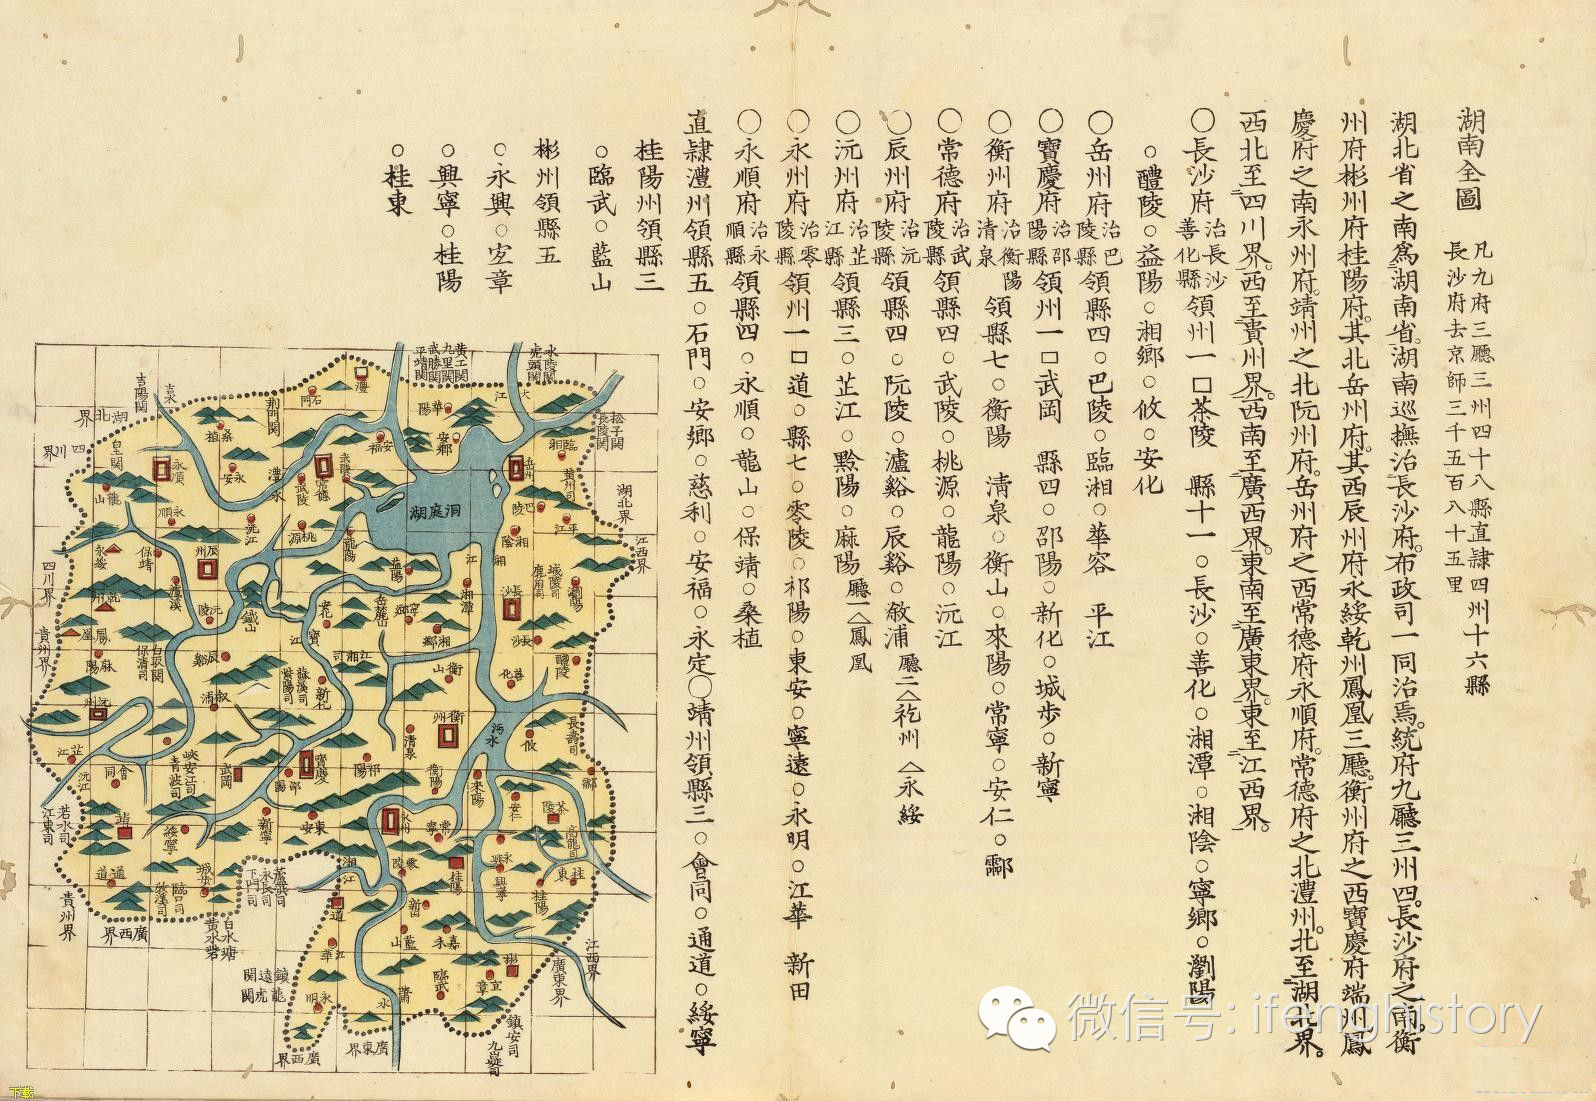 湖南全圖
凡九府三廳三州四十八縣直隸四州十六縣
長沙府去京師三千五百八十五里
湖北省之南爲湖南省湖南巡撫治長沙府布政司一同治焉統府九廳三州四長沙府之南衡
州府彬州府桂陽府其北岳州府其西辰州府永綏乾州鳳凰三廳衡州府之西寶慶府端州鳳
慶府之南永州府靖州之北阮州府岳州府之西常德府永順府常德府之北澧州北至湖北界
西北至四川界西至貴州界西南至廣西界東南至廣東界東至江西界
○長沙府治長沙善化縣領州一□茶陵 縣十一○長沙○善化○湘潭○湘陰○寧鄉○瀏陽
○醴陵○益陽○湘鄉○攸○安化
○岳州府治巴陵縣領縣四○巴陵○臨湘○華容 平江
○寶慶府治邵陽縣領州一□武岡 縣四○邵陽○新化○城步○新寧
○衡州府治衡陽清泉領縣七○衡陽 清泉○衡山○來陽○常寧○安仁○酃
○常德府治武陵縣領縣四○武陵○桃源○龍陽○沅江
○辰州府治沅陵縣領縣四○阮陵○瀘谿○辰谿○敘浦廳二△乾州△永綏
○沅州府治芷江縣領縣三○芷江○黔陽○麻陽廳一△鳳凰
○永州府治零陵縣領州一□道○縣七○零陵○祁陽○東安○寧遠○永明○江華 新田
○永順府治永順縣領縣四○永順○龍山○保靖○桑植
直隸澧州領縣五○石門○安鄉○慈利○安福○永定○靖州領縣三○會同○通道○綏寧
桂陽州領縣三
○臨武○藍山
彬州領縣五
○永興○宐章
○興寧○桂陽
○桂東
洞庭湖
湖北界
四川界
四川界
貴州界
貴州界
廣西界
廣西界
廣東界
廣東界
江西界
江西界
湖北界
吉陽關
荆門關
澧
石門
華陽
安鄉
安福
臨湘
岳州
巴陵
平江
湘陰
桑植
永順
永安
龍山
保靖
常德
武陵
桃源
龍陽
沅江
益陽
辰州
沅陵
辰谿
麻陽
鳳凰
沅州
芷江
會同
靖
通道
綏寧
城步
新寧
武岡
寶慶
邵陽
新化
長沙
湘潭
寧鄉
湘鄉
瀏陽
醴陵
善化
衡山
衡州
清泉
衡陽
來陽
祁陽
東安
永州
零陵
常寧
安仁
永興
興寧
桂陽
桂東
新田
嘉禾
藍山
臨武
彬
宜章
道
江華
永明
鎮安司
微信号: ifenghistory
下载